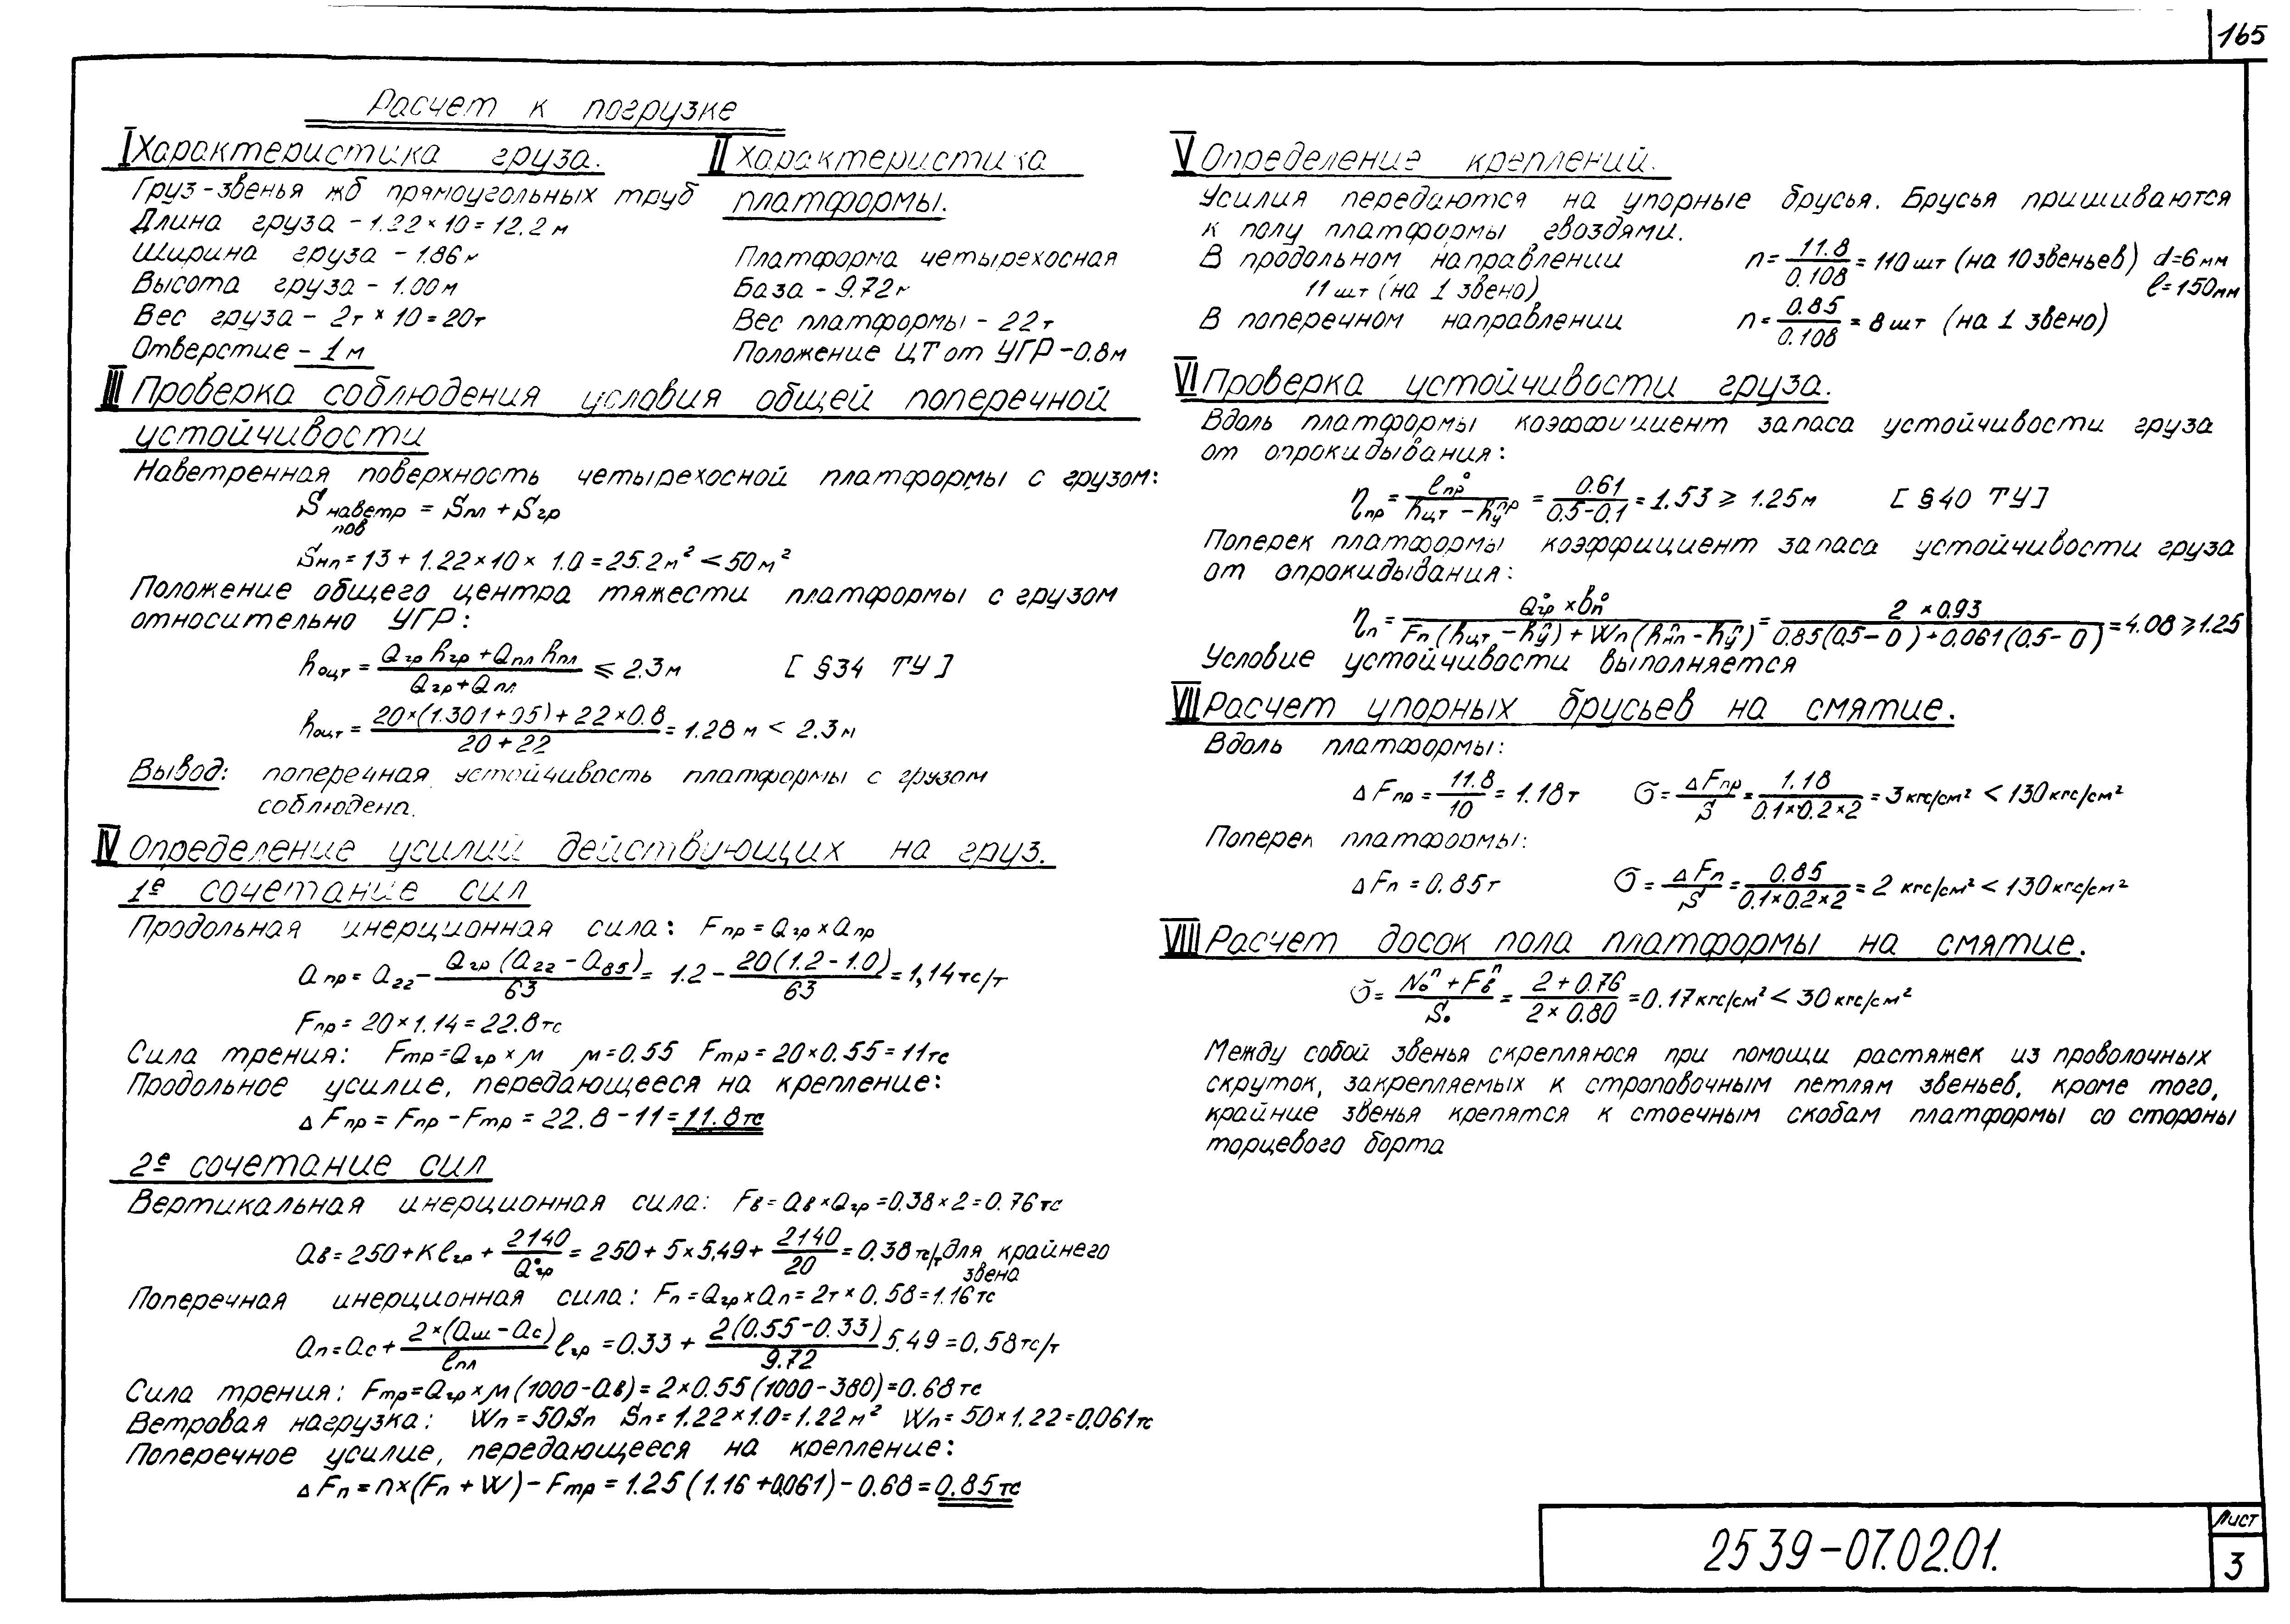 165
Расчет к погрузке
I Характеристика груза.
Груз - звенья жб прямоугольных труб
Длина груза - 1.22 × 10 = 12.2 м
Ширина груза - 1.86 м
Высота груза - 1.00 м
Вес груза - 2т × 10 = 20т
Отверстие - 1 м
II Характеристика
платформы.
Платформа четырехосная
База - 9.72 м
Вес платформы - 22 т
Положение ЦТ от УГР - 0.8 м
III Проверка соблюдения условия общей поперечной
устойчивости
Наветренная поверхность четырехосной платформы с грузом:
S наветр пов = Sпл + Sгр
Sнп = 13 + 1.22 × 10 × 1.0 = 25.2 м² < 50 м²
Положение общего центра тяжести платформы с грузом
относительно УГР:
hоцт = (Qгр hгр + Qпл hпл) / (Qгр + Qпл) ≤ 2.3 м [§34 ТУ]
hоцт = (20 × (1.301 + 05) + 22 × 0.8) / (20 + 22) = 1.28 м < 2.3 м
Вывод: поперечная устойчивость платформы с грузом
соблюдена.
IV Определение усилий действующих на груз.
1е сочетание сил
Продольная инерционная сила: Fпр = Qгр × aпр
aпр = a22 - Qгр (a22 - a85) / 63 = 1.2 - 20 (1.2 - 1.0) / 63 = 1,14 тс/т
Fпр = 20 × 1.14 = 22.8 тс
Сила трения: Fтр = Qгр × м м = 0.55 Fтр = 20 × 0.55 = 11 тс
Продольное усилие, передающееся на крепление:
Δ Fпр = Fпр - Fтр = 22.8 - 11 = 11.8 тс
2е сочетание сил
Вертикальная инерционная сила: Fв = aв × Qгр = 0.38 × 2 = 0.76 тс
aв = 250 + К lгр + 2140 / Q°гр = 250 + 5 × 5,49 + 2140 / 20 = 0.38 тс/т для крайнего
звена
Поперечная инерционная сила: Fп = Qгр × aп = 2т × 0.58 = 1.16 тс
aп = aс + 2 × (aш - aс) / lпл lгр = 0.33 + 2 (0.55 - 0.33) / 9.72 5.49 = 0,58 тс/т
Сила трения: Fтр = Qгр × м (1000 - aв) = 2 × 0.55 (1000 - 380) = 0.68 тс
Ветровая нагрузка: Wп = 50 Sп Sп = 1.22 × 1.0 = 1.22 м² Wп = 50 × 1.22 = 0,061 тс
Поперечное усилие, передающееся на крепление:
Δ Fп = n × (Fп + W) - Fтр = 1.25 (1.16 + 0,061) - 0.68 = 0.85 тс
V Определение креплений.
Усилия передаются на упорные брусья. Брусья пришиваются
к полу платформы гвоздями.
В продольном направлении n = 11.8 / 0.108 = 110 шт (на 10 звеньев) d = 6 мм
11 шт (на 1 звено) l = 150 мм
В поперечном направлении n = 0.85 / 0.108 = 8 шт (на 1 звено)
VI Проверка устойчивости груза.
Вдоль платформы коэффициент запаса устойчивости груза
от опрокидывания:
ηпр = l°пр / (hцт - hупр) = 0.61 / (0.5 - 0.1) = 1.53 ≥ 1.25 м [§40 ТУ]
Поперек платформы коэффициент запаса устойчивости груза
от опрокидывания:
ηп = Q°гр × b°п / (Fп (hцт - hуп) + Wп (hнпп - hуп)) = 2 × 0.93 / (0.85 (0.5 - 0) + 0.061 (0.5 - 0)) = 4.08 ≥ 1.25
Условие устойчивости выполняется
VII Расчет упорных брусьев на смятие.
Вдоль платформы:
Δ Fпр = 11.8 / 10 = 1.18 т σ = Δ Fпр / S = 1.18 / (0.1 × 0.2 × 2) = 3 кгс/см² < 130 кгс/см²
Поперек платформы:
Δ Fп = 0.85 т σ = Δ Fп / S = 0.85 / (0.1 × 0.2 × 2) = 2 кгс/см² < 130 кгс/см²
VIII Расчет досок пола платформы на смятие.
σ = (Nоп + Fвп) / Sо = (2 + 0.76) / (2 × 0.80) = 0.17 кгс/см² < 30 кгс/см²
Между собой звенья скрепляюся при помощи растяжек из проволочных
скруток, закрепляемых к строповочным петлям звеньев, кроме того,
крайние звенья крепятся к стоечным скобам платформы со стороны
торцевого борта
2539-07.02.01.
Лист
3